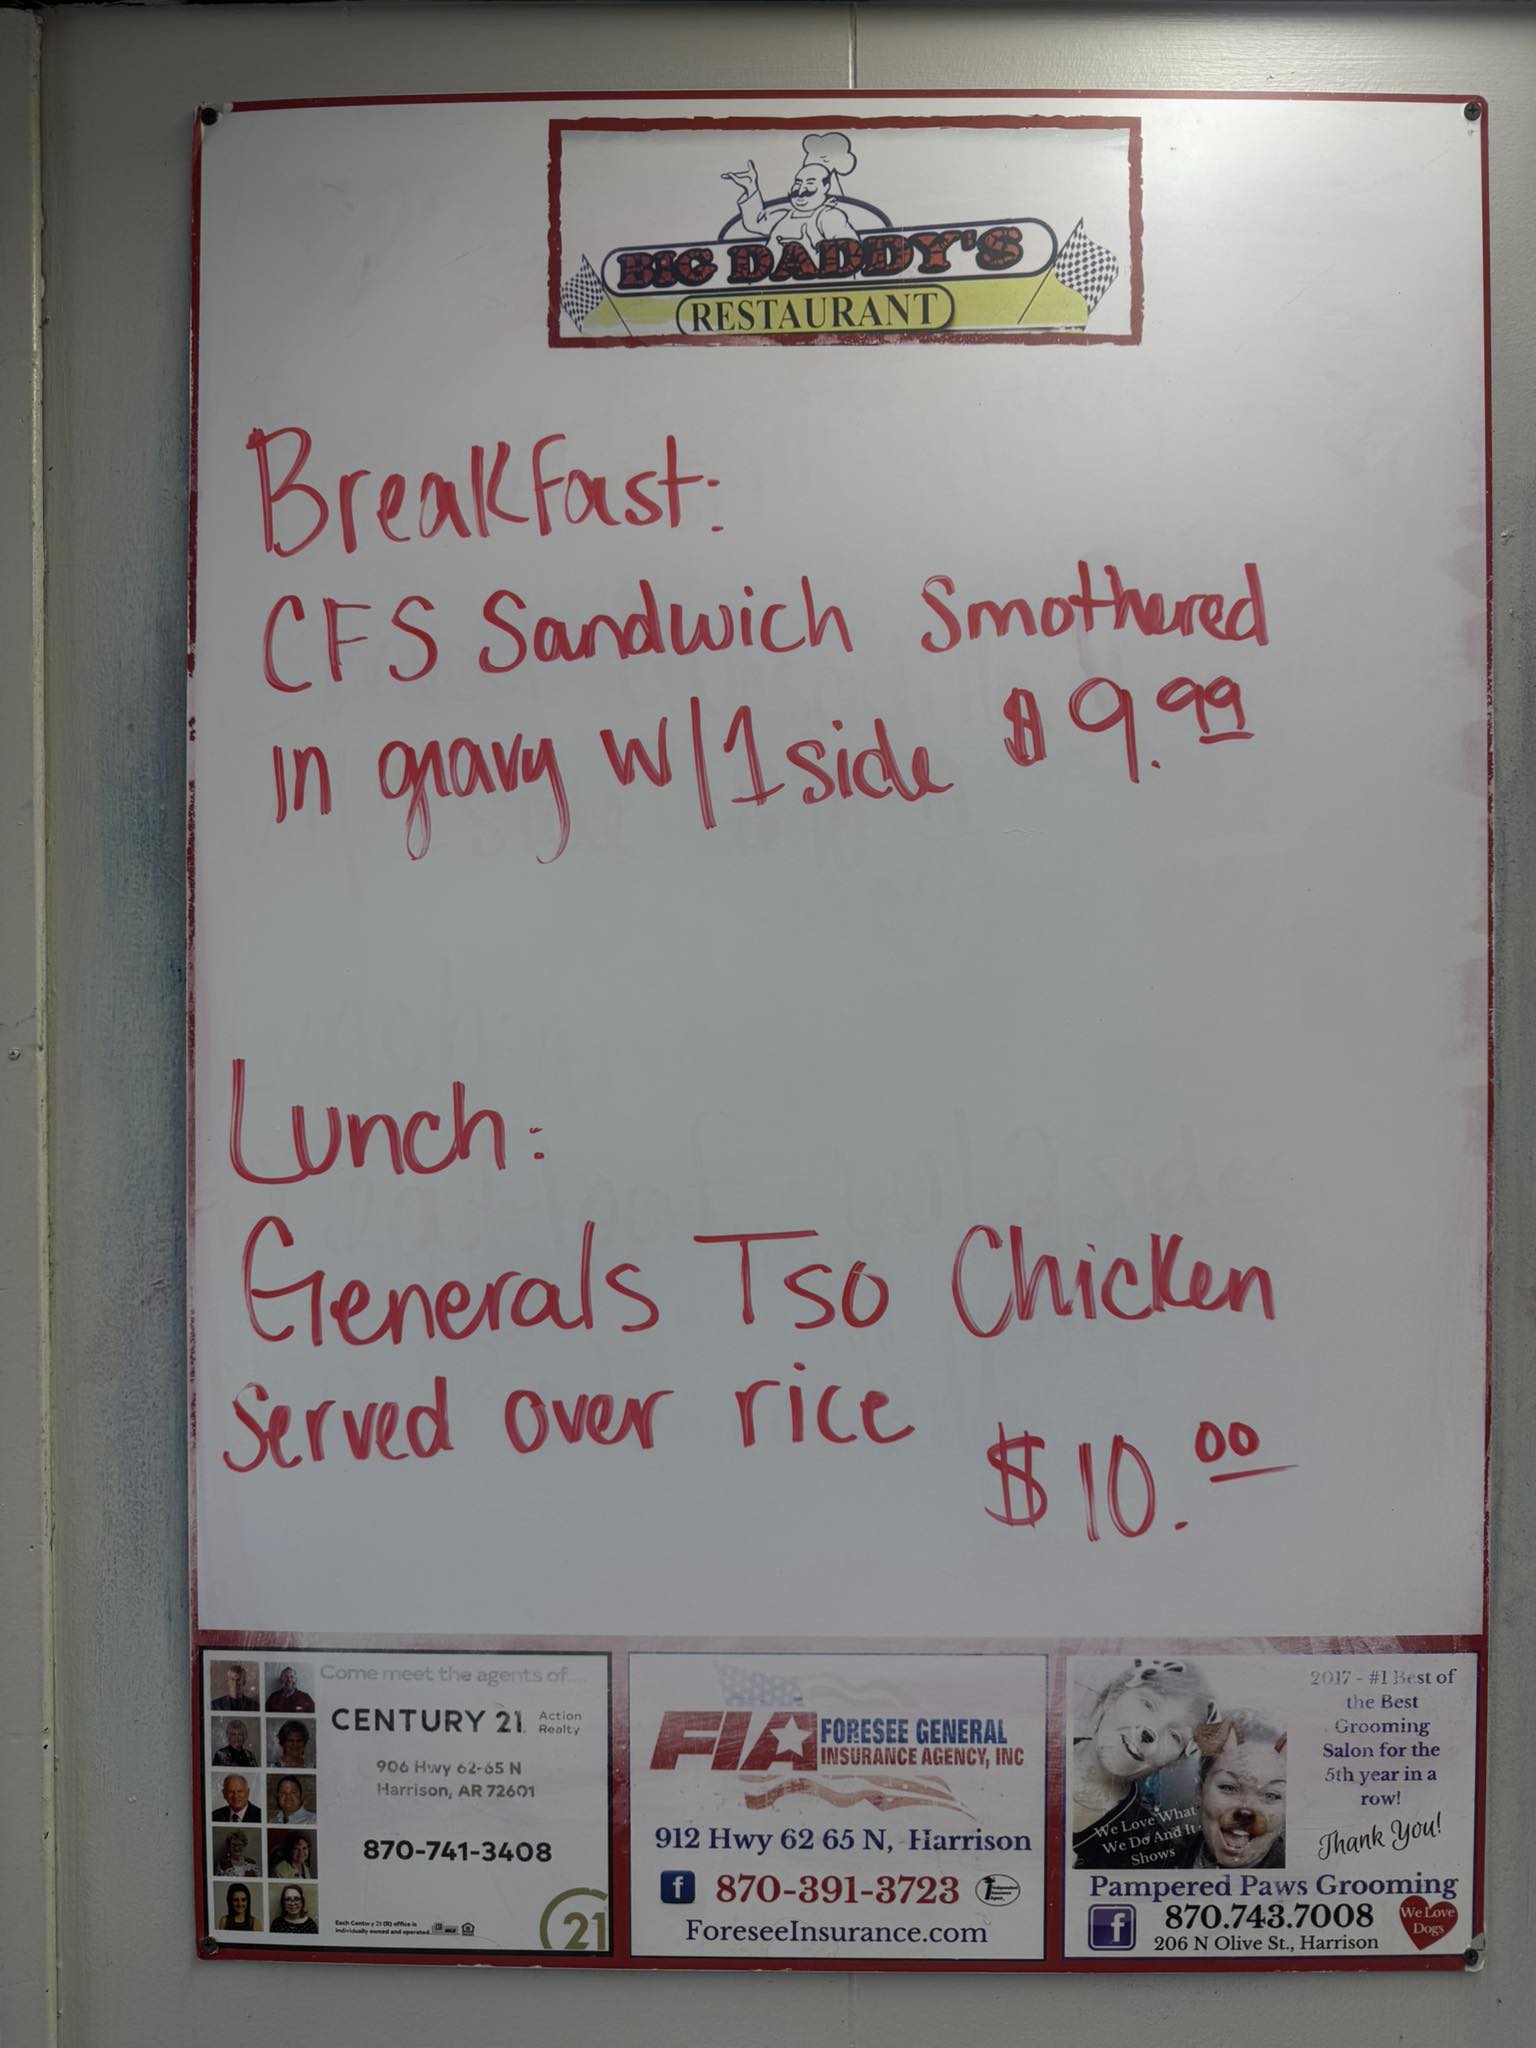 BIG DADDY'S
RESTAURANT
Breakfast:
CFS Sandwich Smothered
in gravy w/1 side $9.99
Lunch:
Generals Tso Chicken
Served over rice
$10.00
Come meet the agents of....
CENTURY 21
Action
Realty
906 Hwy 62-65 N
Harrison, AR 72601
870-741-3408
Each Century 21 (R) office is
individually owned and operated.
21
FIA
FORESEE GENERAL
INSURANCE AGENCY, INC
912 Hwy 62 65 N, Harrison
f 870-391-3723
ForeseeInsurance.com
2017 - #1 Best of
the Best
Grooming
Salon for the
5th year in a
row!
Thank You!
We Love What
We Do And It
Shows
Pampered Paws Grooming
f 870.743.7008
206 N Olive St., Harrison
We Love
Dogs